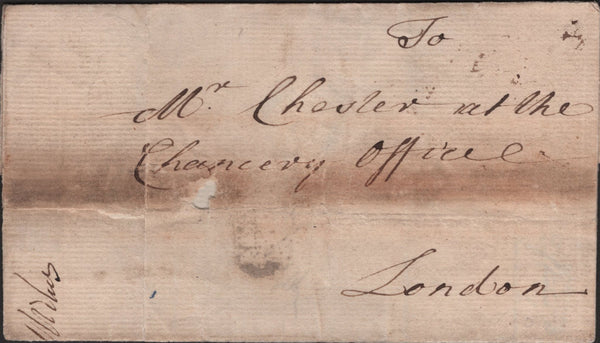 To
Mr Chester at the
Chancery Office
London